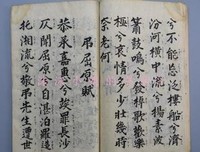 兮不能忘泛樓船兮濟
汾河橫中流兮揚素波
簫鼓鳴兮發棹歌歡樂
極兮哀情多少壯幾時
奈老何
吊屈原賦
恭承嘉惠兮竢罪長沙
仄聞屈原兮自湛汨羅造
托湘流兮敬吊先生遭世